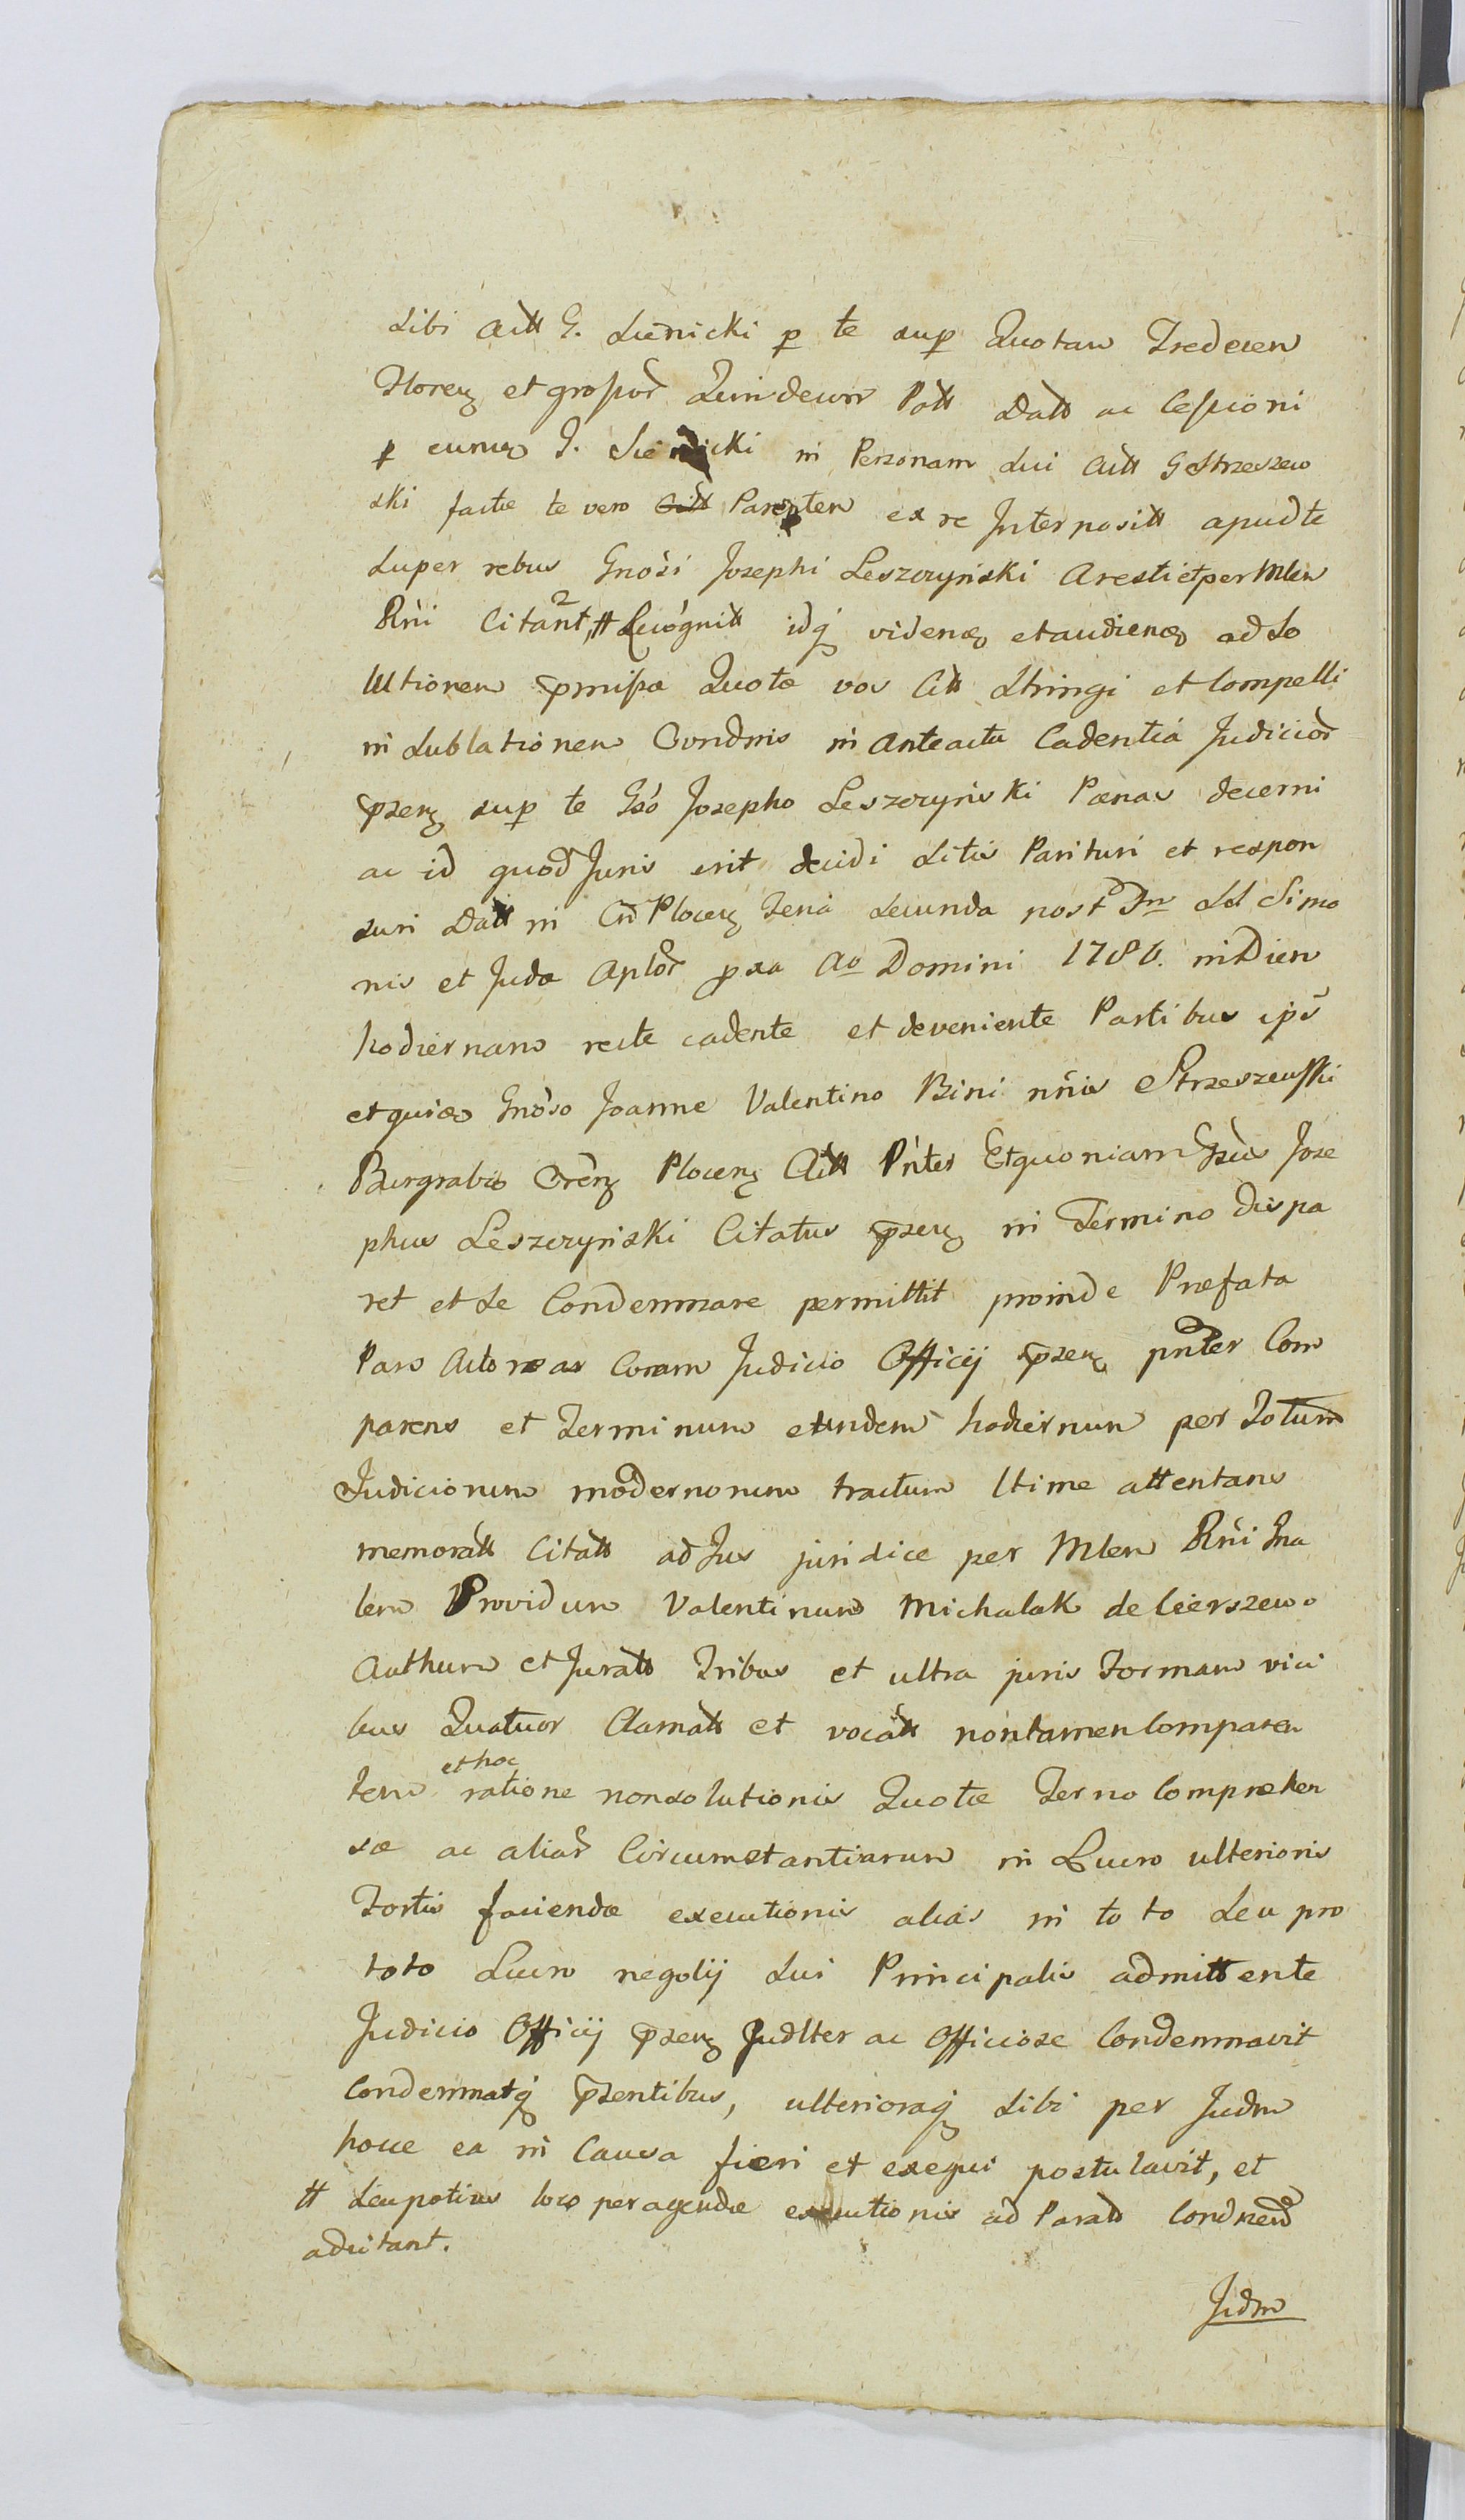 sibi Actt G. Sienicki p te sup Quotam Tredecem
Floreņ et grossor̃ Quindecim Pott Datt ac Cessioni
p eumq G. Sienicki in Personam sui Actt G Strzeszew
ski factæ te vero Parentem ex re Interpositt apud te
super rebus Gnosi Josephi Leszczyński Aresti et per Mlem
Rni Citant, # Recognitt idq videnđ et audienđ ad So
lutionem pmissæ Quotæ vos Citt Stringi et Compelli
in Sublationem Condnis in Anteactu Cadentiá Judicior̃
pseņ sup te Gso Josepho Leszczyński Pænas decerni
ac id quod Juris erit decidi Sitis Parituri et respon
suri Datt in Cr̃ Ploceņ Feria secunda post Fm SSl Simo
nis et Judæ Aplor̃ pxa Ao Domini 1786. in Diem
hodiernam recte cadente et deveniente Partibus ips̃
et quidem Gnoso Joanne Valentino Bini nñis Strzeszewski
Burgrabio Creñ Ploceņ Actt Pnter Et quoniam Gsus Jose
phus Leszczyński Citatus pseņ in Termino dispa
ret et se Condemnare permittit proinde Præfata
Pars Actorea Coram Judicio Officij pseņ pnter Com
parens et Terminum eundem hodiernum per Totum
Judiciorum modernorum tractum ltime attentans
memoratt Citatt ad Jus juridice per Mlem Rni Gna
lem Providum Valentinum Michalak de Cierszewo
Authum et Juratt Tribus et ultra juris Formam vici
bus Quatuor Clamatt et vocatt non tamen Comparen
tem et hoc ratione non solutionis Quotæ Termo Comprehen
sæ ac aliar̃ Circumstantiarum in Lucro ulterioris
Fortis faciendæ executionis alias in toto seu pro
toto Lucro negotij sui Principalis admittente
Judicio Officij pseņ Judlter ac Officiose Condemnavit
Condemnatq psentibus, ulterioraq sibi per Judm
hocce ea in Causa fieri et exequi postulavit, et
# seu potius loco peragendæ executionis ad Parañ Condnem̃
adcitant.
Judm